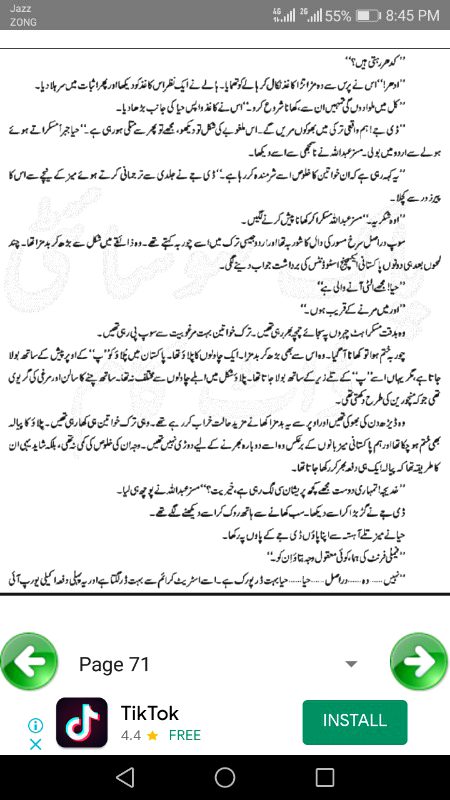 Jazz
ZONG
4G 2G 55% 8:45 PM
”کدھر رہتی ہیں؟“
”ادھر!“ اس نے پرس سے وہ مڑا تڑا کاغذ نکال کر ہالے کو تھمایا۔ ہالے نے ایک نظر اس کاغذ کو دیکھا اور پھر اثبات میں سر ہلا دیا۔
”کل میں ملوا دوں گی تمہیں ان سے، کھانا شروع کرو۔“ اس نے کاغذ واپس حیا کی جانب بڑھا دیا۔
”ڈی جے! ہم واقعی ترکی میں بھوکوں مریں گے۔ اس ملغوبے کی شکل تو دیکھو، مجھے تو پھر سے متلی ہو رہی ہے۔“ حیا جبراً مسکراتے ہوئے
ہولے سے اردو میں بولی۔ مسز عبداللہ نے نا سمجھی سے اسے دیکھا۔
”یہ کہہ رہی ہے کہ ان خواتین کا خلوص اسے شرمندہ کر رہا ہے۔“ ڈی جے نے جلدی سے ترجمانی کرتے ہوئے میز کے نیچے سے اس کا
پیر زور سے کچلا۔
”اوہ شکریہ۔“ مسز عبداللہ مسکرا کر کھانا پیش کرنے لگیں۔
سوپ دراصل سرخ مسور کی دال کا شوربہ تھا اور اردو جیسی ترک میں اسے چوربہ کہتے تھے۔ وہ ذائقے میں شکل سے بڑھ کر بدمزا تھا۔ چند
لمحوں بعد ہی دونوں پاکستانی ایکسچینج اسٹوڈنٹس کی برداشت جواب دینے لگی۔
”حیا! مجھے الٹی آنے والی ہے“
”اور میں مرنے کے قریب ہوں۔“
وہ بدقت مسکراہٹ چہروں پہ سجائے چمچ بھر رہی تھیں۔ ترک خواتین بہت مرغوبیت سے سوپ پی رہی تھیں۔
چوربہ ختم ہوا تو کھانا آ گیا۔ وہ اس سے بھی بڑھ کر بدمزا۔ ایک چاولوں کا پلاؤ تھا۔ پاکستان میں پلاؤ کو ”پ“ کے اوپر پیش کے ساتھ بولا
جاتا ہے، مگر یہاں اسے ”پ“ کے تلے زیر کے ساتھ بولا جاتا تھا۔ پلاؤ شکل میں ابلے چاولوں سے مختلف نہ تھا۔ ساتھ چنے کا سالن اور مرغی کی گریوی
تھی جو کہ منچورین کی طرح دکھتی تھی۔
وہ ڈیڑھ دن کی بھوکی تھیں اور اوپر سے یہ بدمزا کھانے مزید حالت خراب کر رہے تھے۔ وہی ترک خواتین ہی کھا رہی تھیں۔ پلاؤ کا پیالہ
بھی ختم ہو چکا تھا اور ہم پاکستانی میزبانوں کے برعکس وہ اسے دوبارہ بھرنے کے لیے دوڑی نہیں تھیں۔ وجہ ان کی خلوص کی کمی نہ تھی، بلکہ شاید یہی ان
کا طریقہ تھا کہ پیالہ ایک ہی دفعہ بھر کر رکھا جاتا تھا۔
”خدیجہ! تمہاری دوست مجھے کچھ پریشان سی لگ رہی ہے، خیریت؟“ مسز عبداللہ نے پوچھ ہی لیا۔
ڈی جے نے گڑبڑا کر اسے دیکھا۔ سب کھانے سے ہاتھ روک کر اسے دیکھنے لگے تھے۔
حیا نے میز تلے آہستہ سے اپنا پاؤں ڈی جے کے پاؤں پہ رکھا۔
”فیملی فرنٹ کی ہما، کوئی معقول وجہ بتاؤ ان کو۔“
”نہیں...... وہ...... دراصل...... حیا...... حیا بہت ڈرپوک ہے۔ اسے اسٹریٹ کرائم سے بہت ڈر لگتا ہے اور یہ پہلی دفعہ اکیلی یورپ آئی
Page 71
TikTok
4.4 FREE
INSTALL